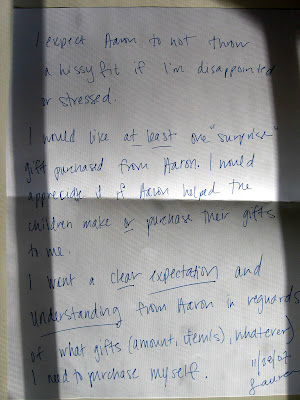 I expect Aaron to not throw
a hissy fit if I'm disappointed
or stressed.
I would like at least one "surprise"
gift purchased from Aaron. I would
appreciate it if Aaron helped the
children make or purchase their gifts
to me.
I want a clear expectation and
understanding from Aaron in reguards
of what gifts (amount, item(s), whatever)
I need to purchase myself.
11/28/07
Lauren